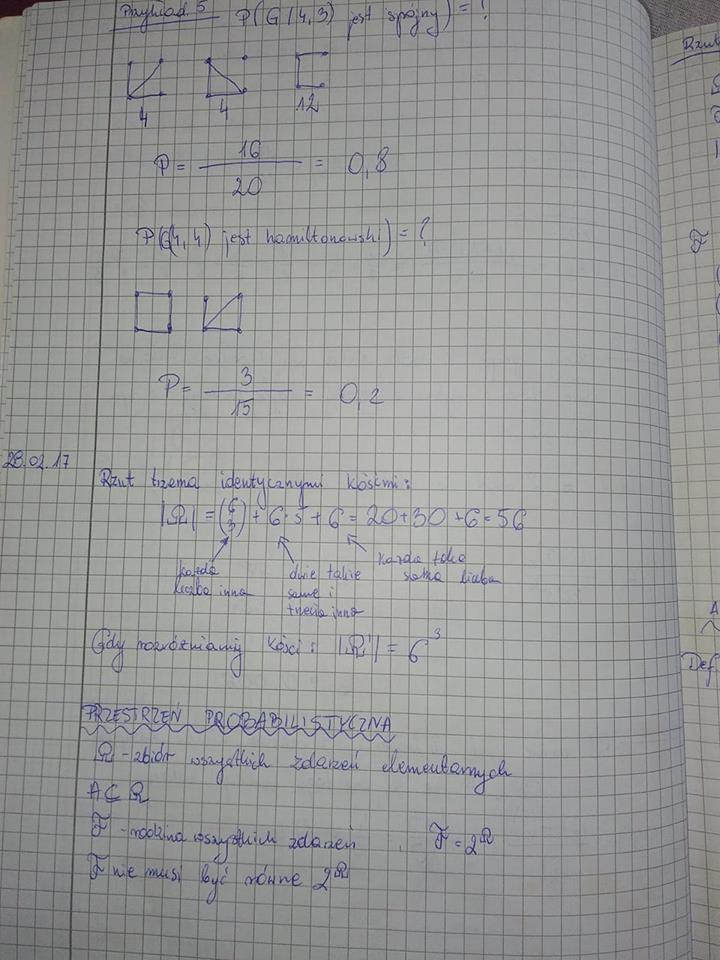 Przykład. 5 P(G(4,3) jest spójny) = ?
4 4 12
P = 16/20 = 0,8
P(G(4,4) jest hamiltonowski) = ?
P = 3/15 = 0,2
28.02.17
Rzut trzema identycznymi kośćmi:
|Ω| = (6 3) + 6·5 + 6 = 20+30+6 = 56
każda liczba inna
dwie takie same i trzecia inna
każda taka sama liczba
Gdy rozróżniamy kości: |Ω'| = 6³
PRZESTRZEŃ PROBABILISTYCZNA
Ω - zbiór wszystkich zdarzeń elementarnych
A ⊆ Ω
F - rodzina wszystkich zdarzeń F = 2^Ω
F nie musi być równe 2^Ω
Rzut
F
A
Def